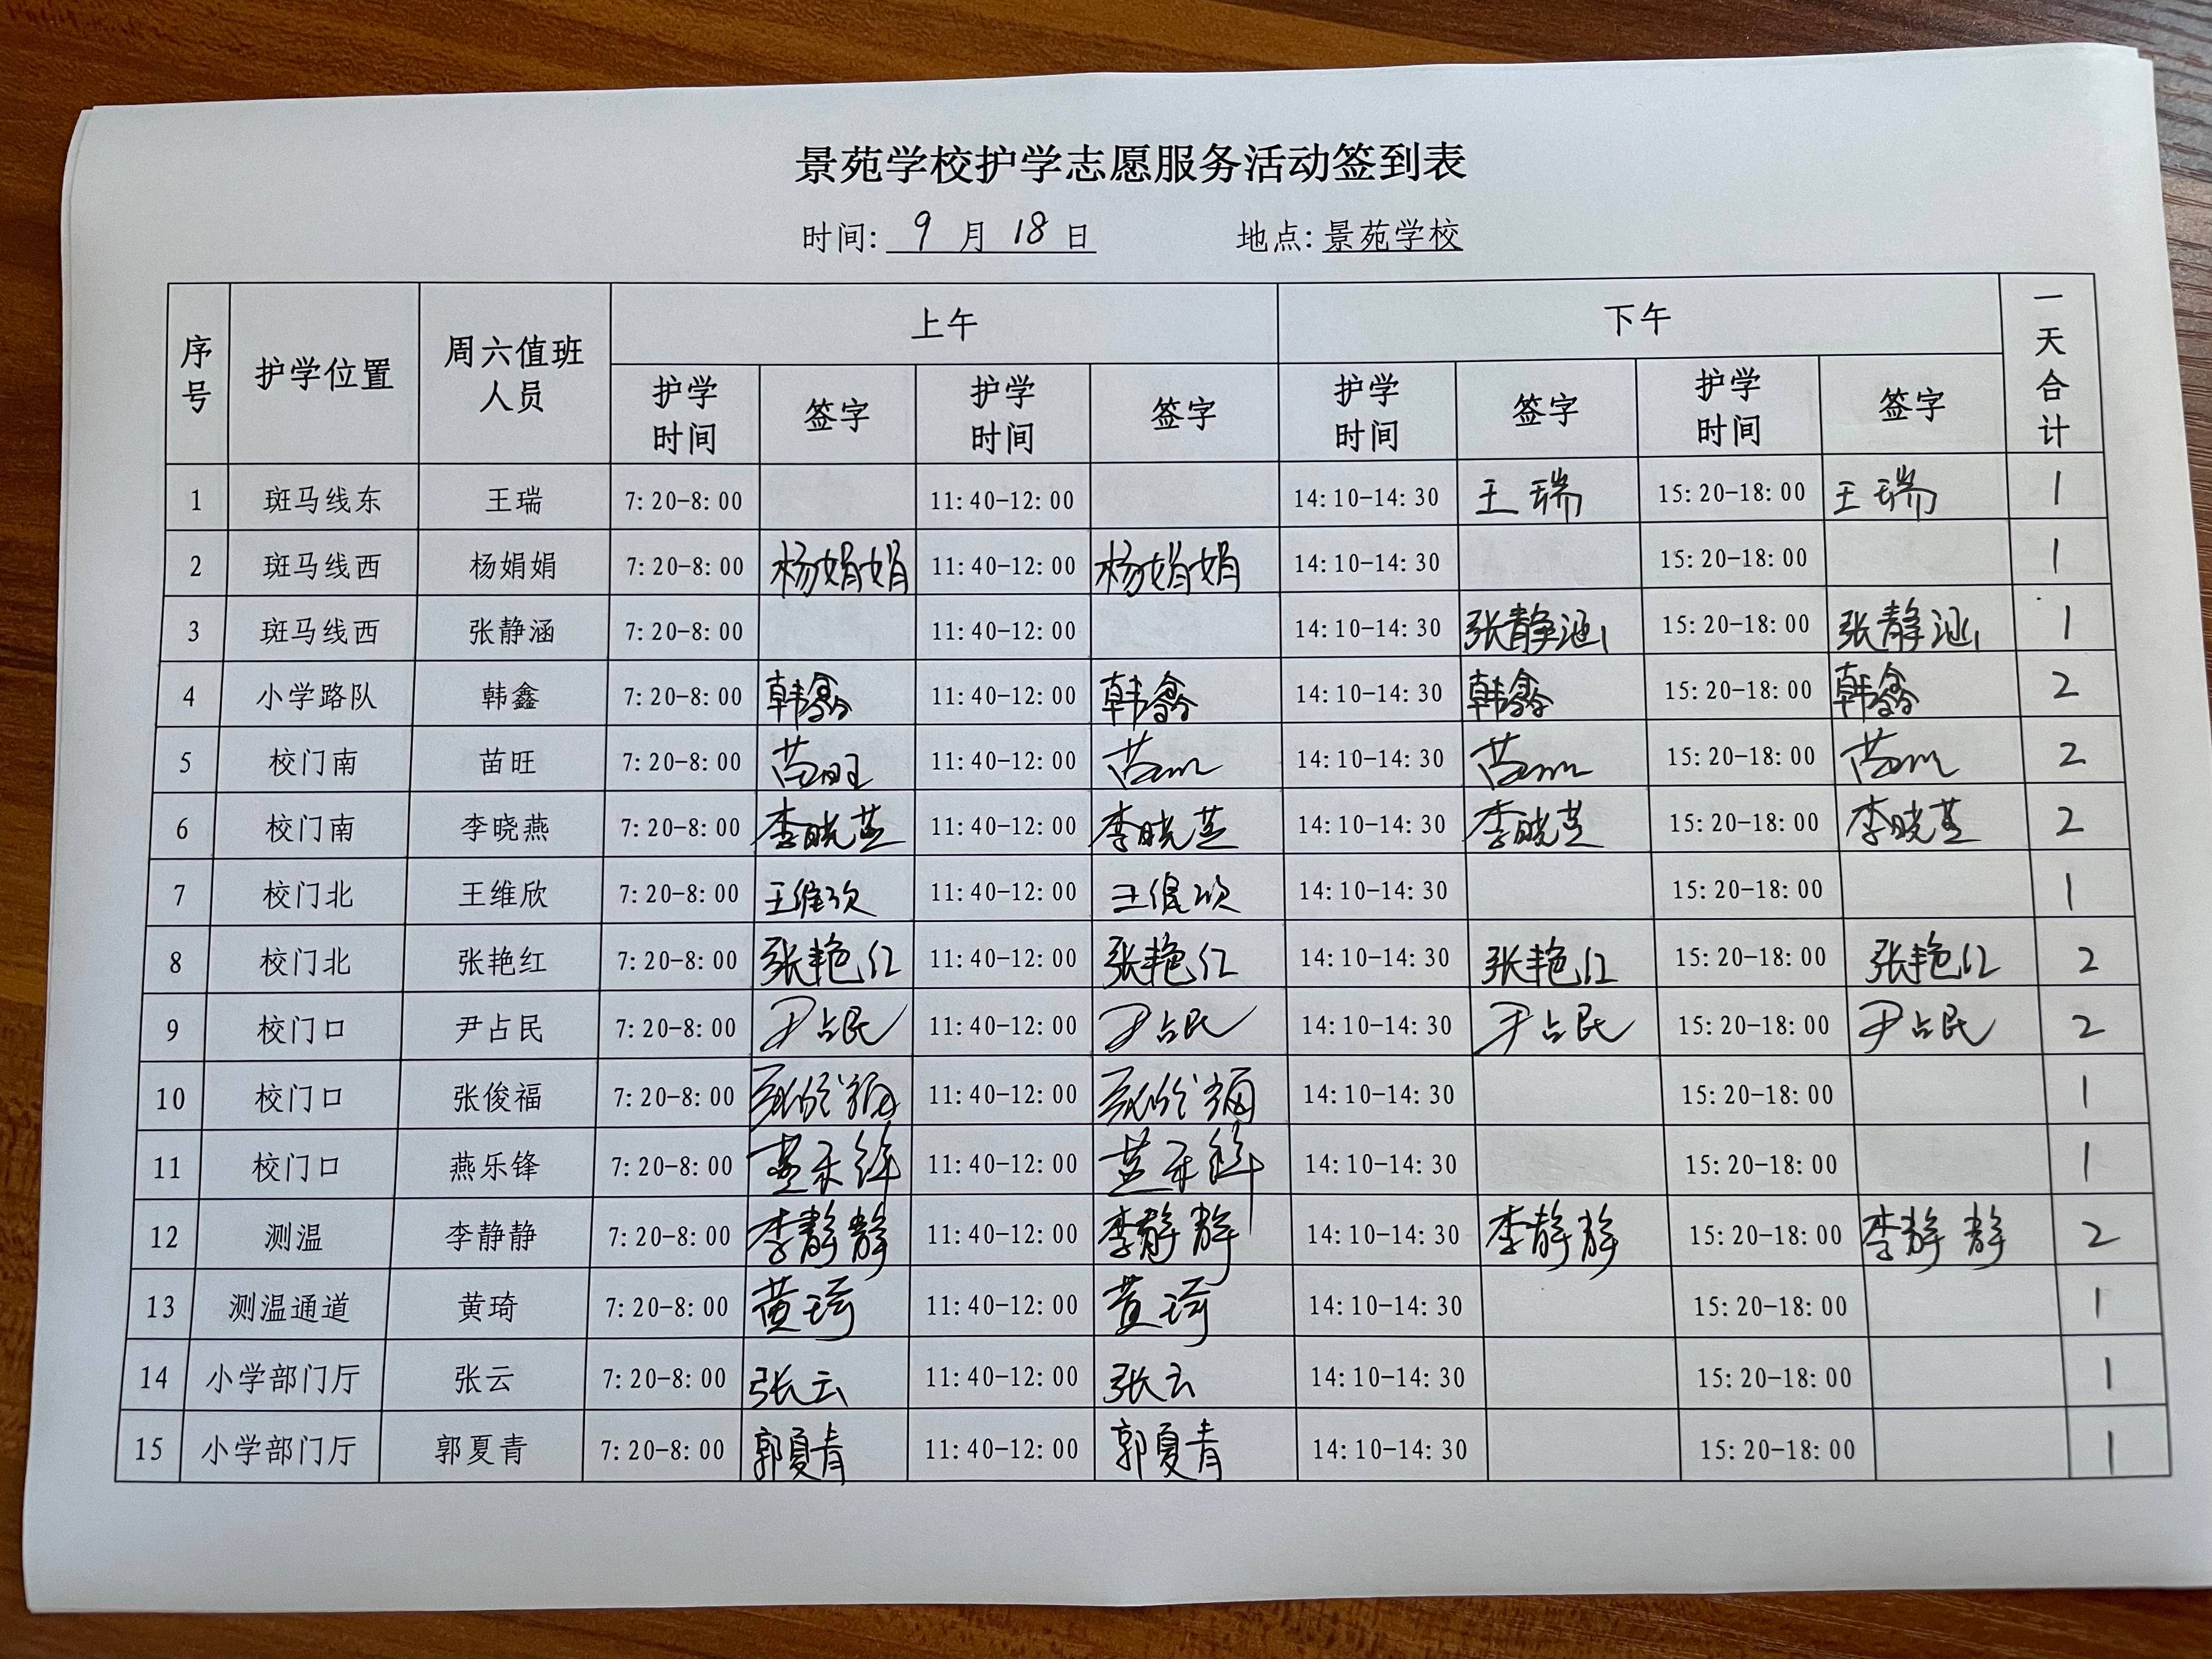 景苑学校护学志愿服务活动签到表
时间: 9 月 18 日 地点: 景苑学校
序号 护学位置 周六值班人员 上午 下午 一天合计
护学时间 签字 护学时间 签字 护学时间 签字 护学时间 签字
1 斑马线东 王瑞 7:20-8:00 11:40-12:00 14:10-14:30 王瑞 15:20-18:00 王瑞 1
2 斑马线西 杨娟娟 7:20-8:00 杨娟娟 11:40-12:00 杨娟娟 14:10-14:30 15:20-18:00 1
3 斑马线西 张静涵 7:20-8:00 11:40-12:00 14:10-14:30 张静涵 15:20-18:00 张静涵 1
4 小学路队 韩鑫 7:20-8:00 韩鑫 11:40-12:00 韩鑫 14:10-14:30 韩鑫 15:20-18:00 韩鑫 2
5 校门南 苗旺 7:20-8:00 苗旺 11:40-12:00 苗旺 14:10-14:30 苗旺 15:20-18:00 苗旺 2
6 校门南 李晓燕 7:20-8:00 李晓燕 11:40-12:00 李晓燕 14:10-14:30 李晓燕 15:20-18:00 李晓燕 2
7 校门北 王维欣 7:20-8:00 王维欣 11:40-12:00 王维欣 14:10-14:30 15:20-18:00 1
8 校门北 张艳红 7:20-8:00 张艳红 11:40-12:00 张艳红 14:10-14:30 张艳红 15:20-18:00 张艳红 2
9 校门口 尹占民 7:20-8:00 尹占民 11:40-12:00 尹占民 14:10-14:30 尹占民 15:20-18:00 尹占民 2
10 校门口 张俊福 7:20-8:00 张俊福 11:40-12:00 张俊福 14:10-14:30 15:20-18:00 1
11 校门口 燕乐锋 7:20-8:00 燕乐锋 11:40-12:00 燕乐锋 14:10-14:30 15:20-18:00 1
12 测温 李静静 7:20-8:00 李静静 11:40-12:00 李静静 14:10-14:30 李静静 15:20-18:00 李静静 2
13 测温通道 黄琦 7:20-8:00 黄琦 11:40-12:00 黄琦 14:10-14:30 15:20-18:00 1
14 小学部门厅 张云 7:20-8:00 张云 11:40-12:00 张云 14:10-14:30 15:20-18:00 1
15 小学部门厅 郭夏青 7:20-8:00 郭夏青 11:40-12:00 郭夏青 14:10-14:30 15:20-18:00 1